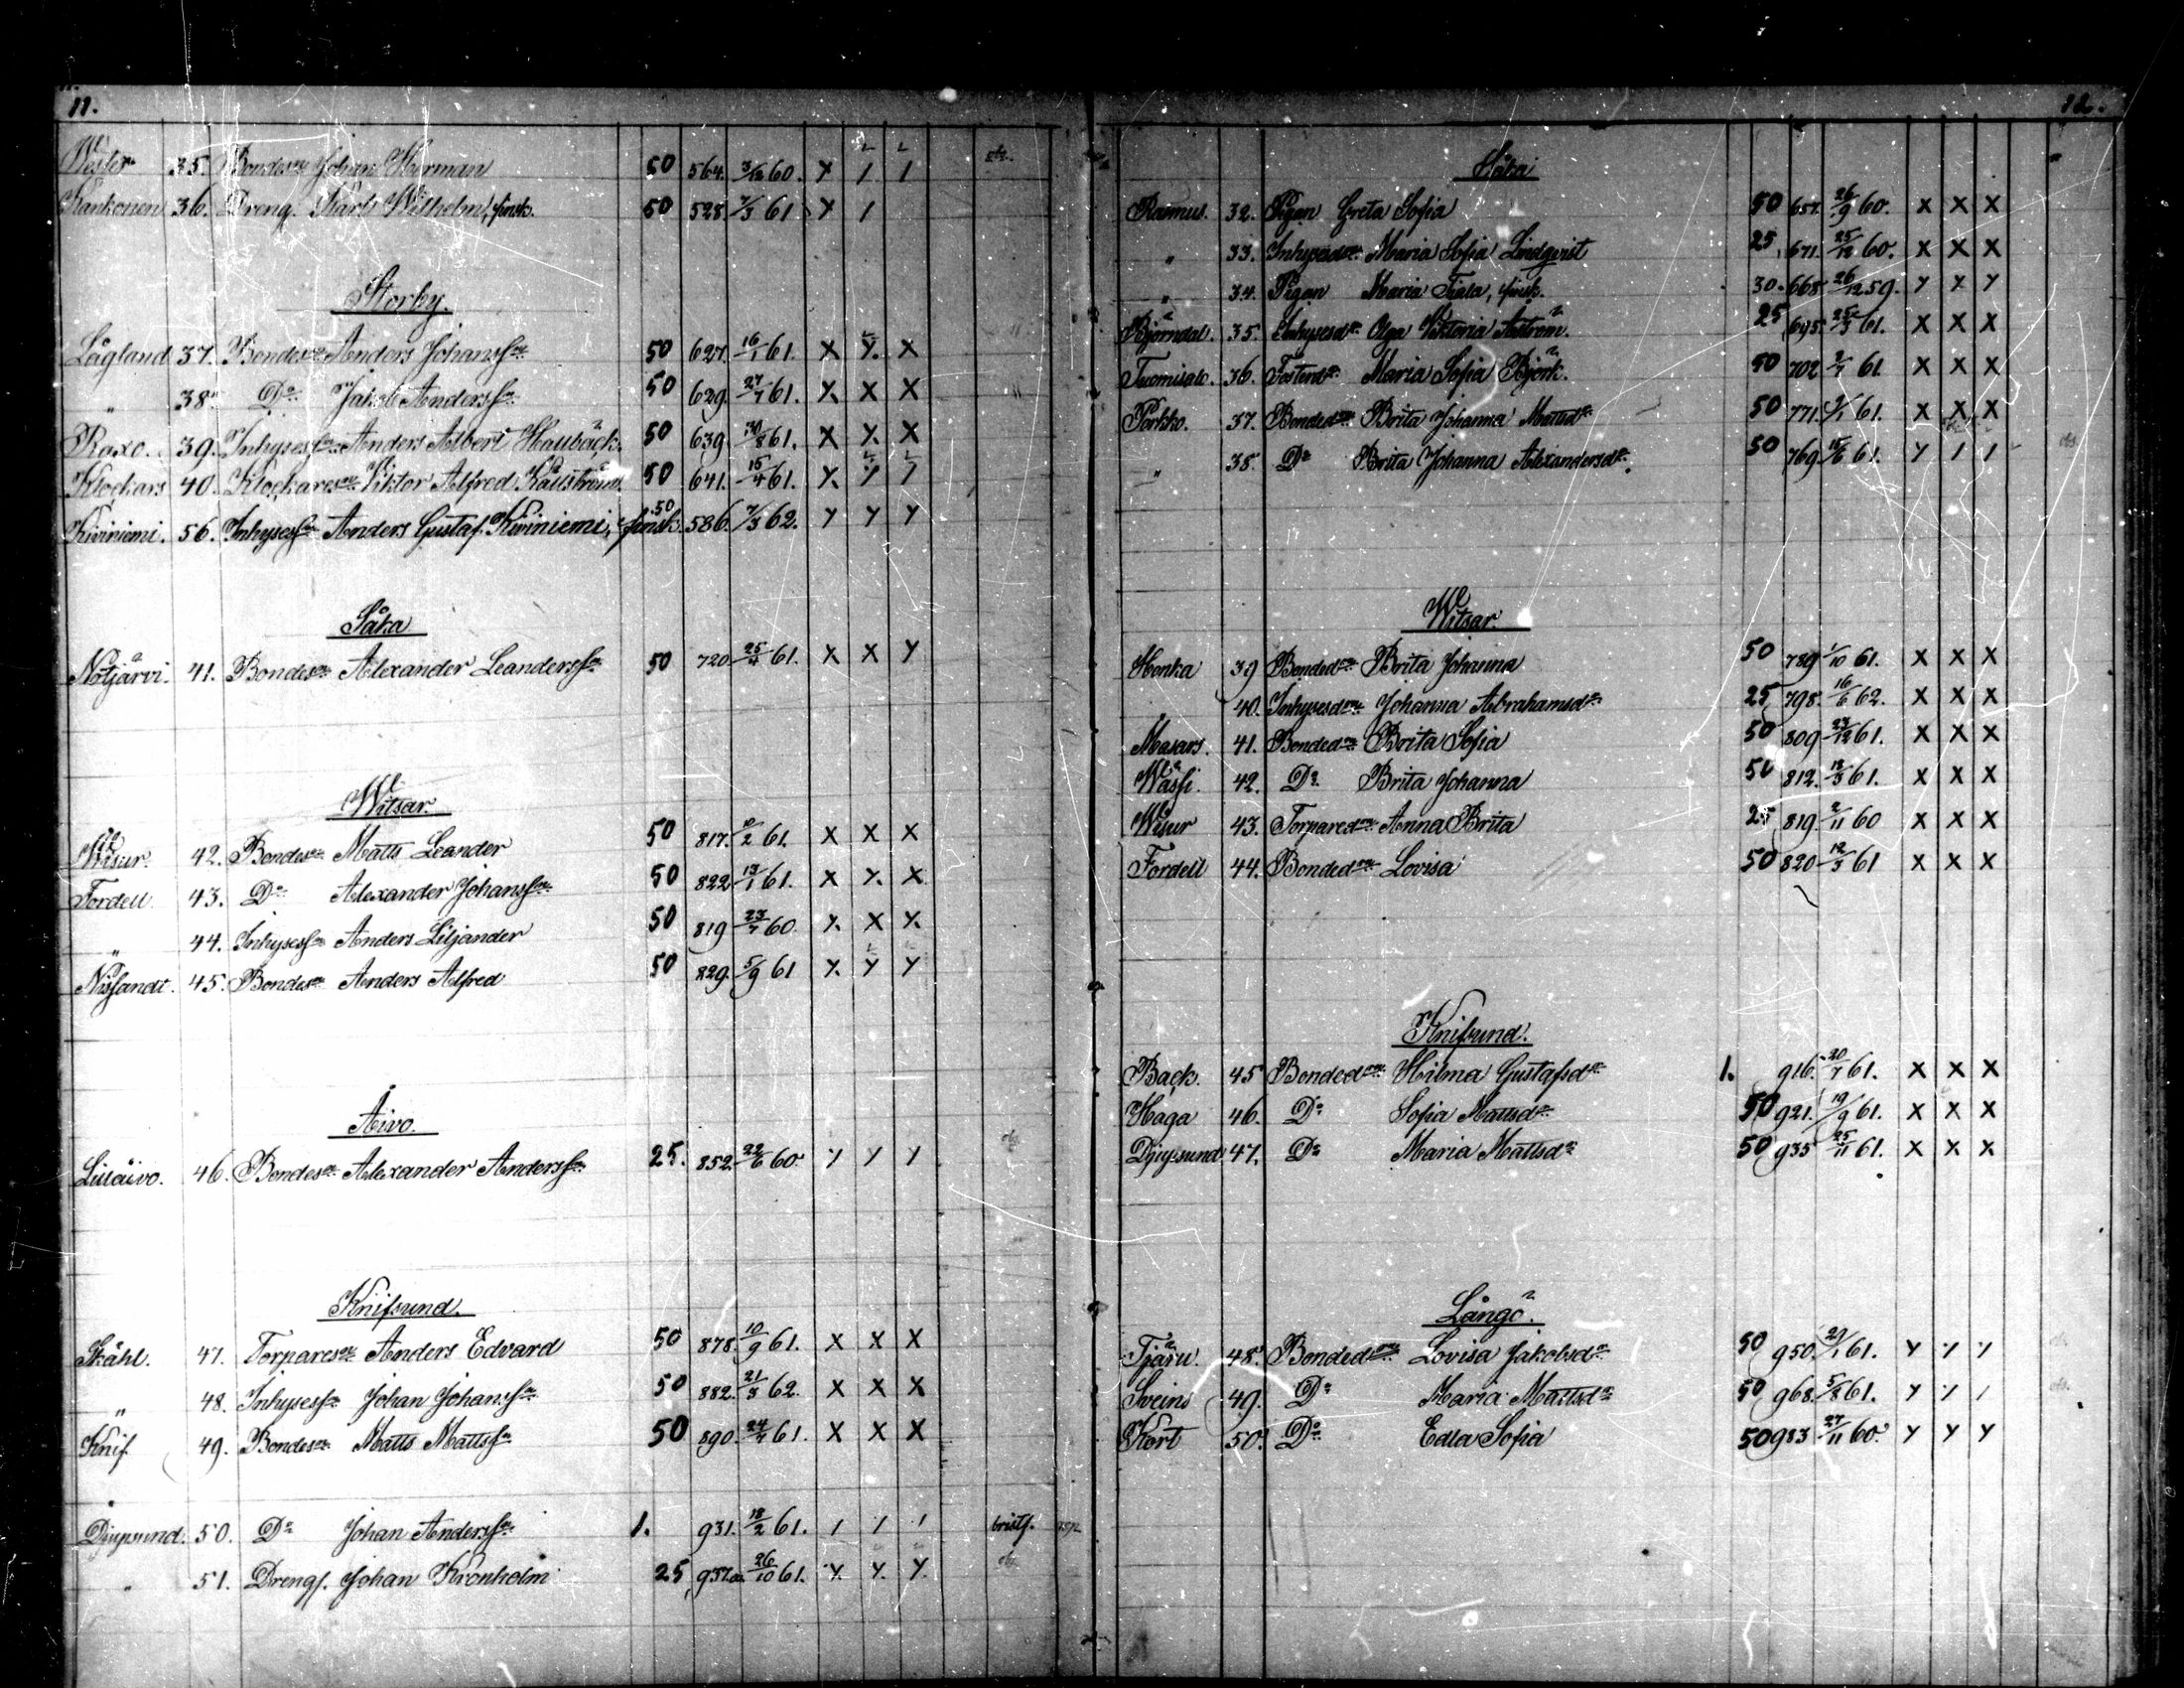 11.
Wester 35. Bondeson Johan Herman 50 564. 3/12 60. Y 1 1
Kankonen 36. Dreng. Karl Wilhelm, finsk. 50 528. 7/3 61 Y 1
Storby.
Lågland 37. Bondeson Anders Johansson 50 627. 16/1 61. X Y. X
" 38. Do Jakob Andersson 50 629. 27/7 61. Y. X X
Raxo. 39. Inhysesson Anders Albert Haubäck. 50 639. 30/8 61. X Y. X
Klockars 40. Klockareson Viktor Alfred Källström. 50 641. 15/4 61. Y. Y 1
Kiviniemi. 56. Inhysesson Anders Gustaf Kiviniemi, finsk. 50 586. 7/3 62. Y Y Y
Såka
Nåtjärvi. 41. Bondeson Alexander Leandersson 50 720. 25/4 61. X X Y
Witsar.
Wisur. 42. Bondeson Matts Leander 50 817. 10/2 61. X X X
Fordell 43. Do Alexander Johansson 50 822 13/1 61. X Y. X
" 44. Inhysesson Anders Liljander 50 819 23/7 60. Y. X X
Nissandt. 45. Bondeson Anders Alfred 50 829. 5/9 61 Y. Y Y
Åivo.
Lillåivo. 46. Bondeson Alexander Andersson 25. 852. 22/6 60. Y Y Y
Knifsund.
Ståhl. 47. Torpareson Anders Edvard 50 878. 10/9 61. X X X
" 48. Inhysesson Johan Johansson 50 882. 21/8 62. X X X
Knif 49. Bondeson Matts Mattsson 50 890. 24/7 61. X X X
Djupsund. 50. Do Johan Andersson 1. 931. 18/2 61. 1 1 1 bristf.
" 51. Drengs. Johan Kronholm 25 937.a. 26/10 61. Y. Y. Y.
12.
Såka
Rasmus. 32. Pigan Greta Sofia 50 657. 26/9 60. X X X
" 33. Inhysesdr Maria Sofia Lindqvist 25 671. 25/12 60. X X X
" 34. Pigan Maria Fiala, finsk. 30. 668 26/12 59. Y Y Y
Björndal. 35. Inhysesdr Olga Viktoria Åström. 25 695. 25/3 61. X X X
Tuomisalo. 36. Fosterdr Maria Sofia Björk. 50 702 2/7 61. X X X
Porkko. 37. Bondedr Brita Johanna Mattsdr 50 771. 9/1 61. X X X
" 38. Do Brita Johanna Alexandersdr. 50 769. 15/6 61. Y 1 1
Witsar.
Honka 39 Bondedr Brita Johanna 50 789 1/10 61. X X X
40. Inhysesdr Johanna Abrahamsdr 25 798. 16/6 62. X X X
Masars. 41. Bondedr Brita Sofia 50 809 23/12 61. X X X
Wassi. 42. Do Brita Johanna 50 812. 18/3 61. X X X
Wisur 43. Torparedr Anna Brita 25 819. 2/11 60 X X X
Fordell 44. Bondedr Lovisa 50 820 12/3 61 X X X
Knifsund.
Back. 45 Bondedr Hilma Gustafsdr 1. 916. 20/7 61. X X X
Haga 46. Do Sofia Mattsdr 50 921. 19/9 61. X X X
Djupsund 47. Do Maria Mattsdr 50 935 25/11 61. X X X
Långö.
Tjäru. 48. Bondedr Lovisa Jakobsdr 50 950. 29/1 61. Y Y Y
Sveins 49. Do Maria Mattsdr 50 968. 5/8 61. Y Y 1
Kort 50. Do Edla Sofia 50 983 27/11 60. Y Y Y